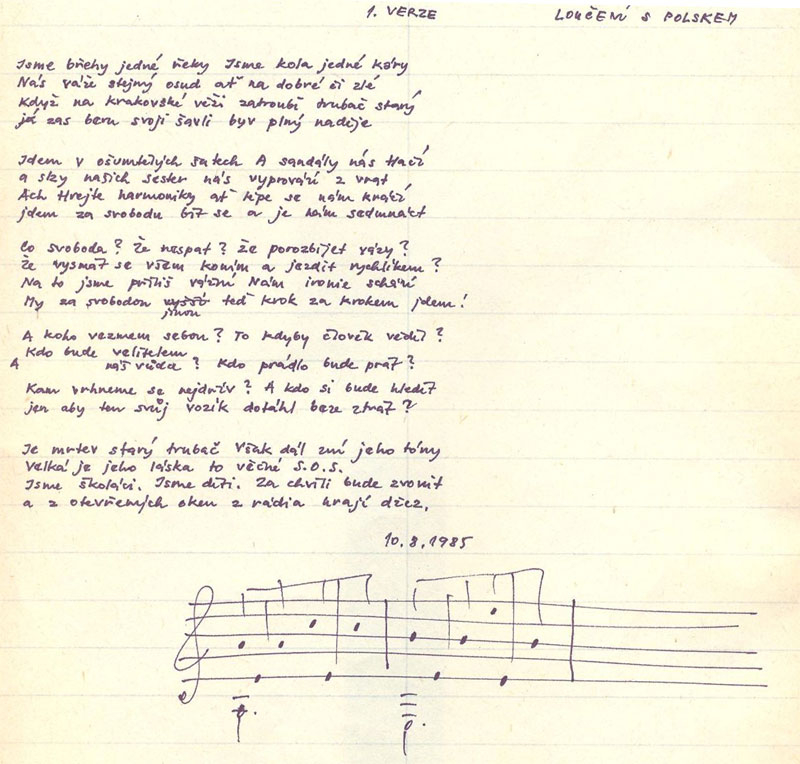 1. VERZE
LOUČENÍ S POLSKEM
Jsme břehy jedné řeky Jsme kola jedné káry
Nás váže stejný osud ať na dobré či zlé
Když na krakovské věži zatroubí trubač starý
já zas beru svoji šavli byv plný naděje
Jdem v ošumtělých šatech A sandály nás tlačí
a slzy našich sester nás vyprovází z vrat
Ach Hrejte harmoniky ať lépe se nám kráčí
jdem za svobodu bít se a je nám sedmnáct
Co svoboda? Že nespat? že porozbíjet vázy?
Že vysmát se všem koním a jezdit rychlíkem?
Na to jsme příliš vážní Nám ironie schází
My za svobodou vyšší teď krok za krokem jdem!
jinou
A koho vezmem sebou? To kdyby člověk věděl?
Kdo bude velitelem
A náš vůdce? Kdo prádlo bude prát?
Kam vrhneme se nejdřív? A kdo si bude hledět
jen aby ten svůj vozík dotáhl beze ztrát?
Je mrtev starý trubač Však dál zní jeho tóny
Velká je jeho láska to věčné S.O.S.
Jsme školáci. Jsme děti. Za chvíli bude zvonit
a z otevřených oken z rádia hrají džez.
10.8.1985